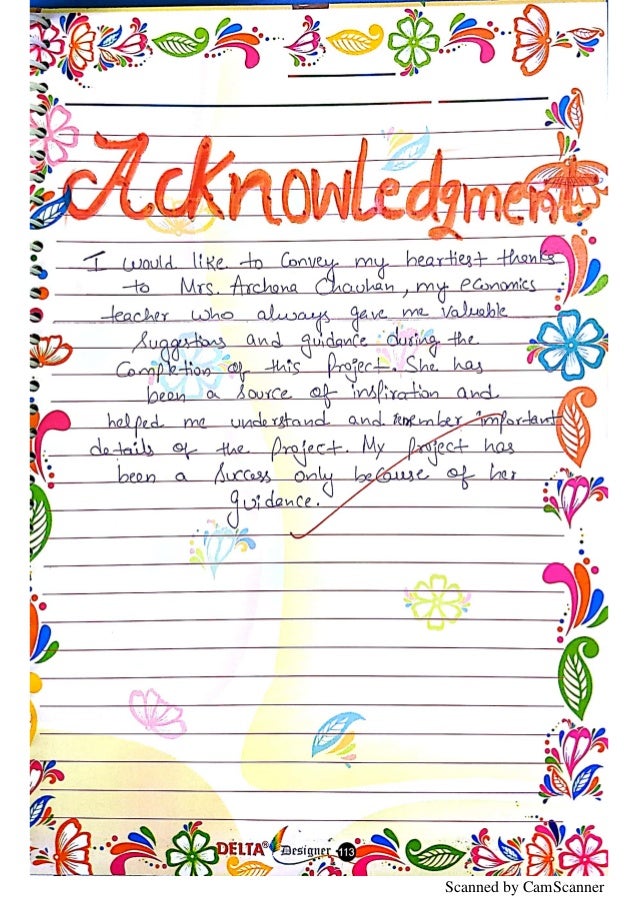 Acknowledgment
I would like to Convey my heartiest thanks
to Mrs. Archana Chauhan, my economics
teacher who always gave me Valuable
Suggestions and guidance during the
Completion of this Project. She has
been a Source of inspiration and
helped me understand and remember important
details of the Project. My Project has
been a Success only because of her
guidance.
DELTA® Designer 113
Scanned by CamScanner